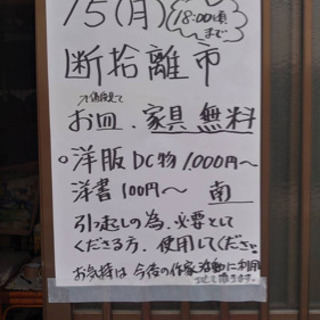 15(月)
18:00頃
まで
断捨離市
お皿、家具 無料
。洋服 DC物 1.000円〜
洋書 100円〜 南
引っ起しの為、必要として
くださる方、使用してください
お気持は 今後の作家活動に利用
させて頂きます。